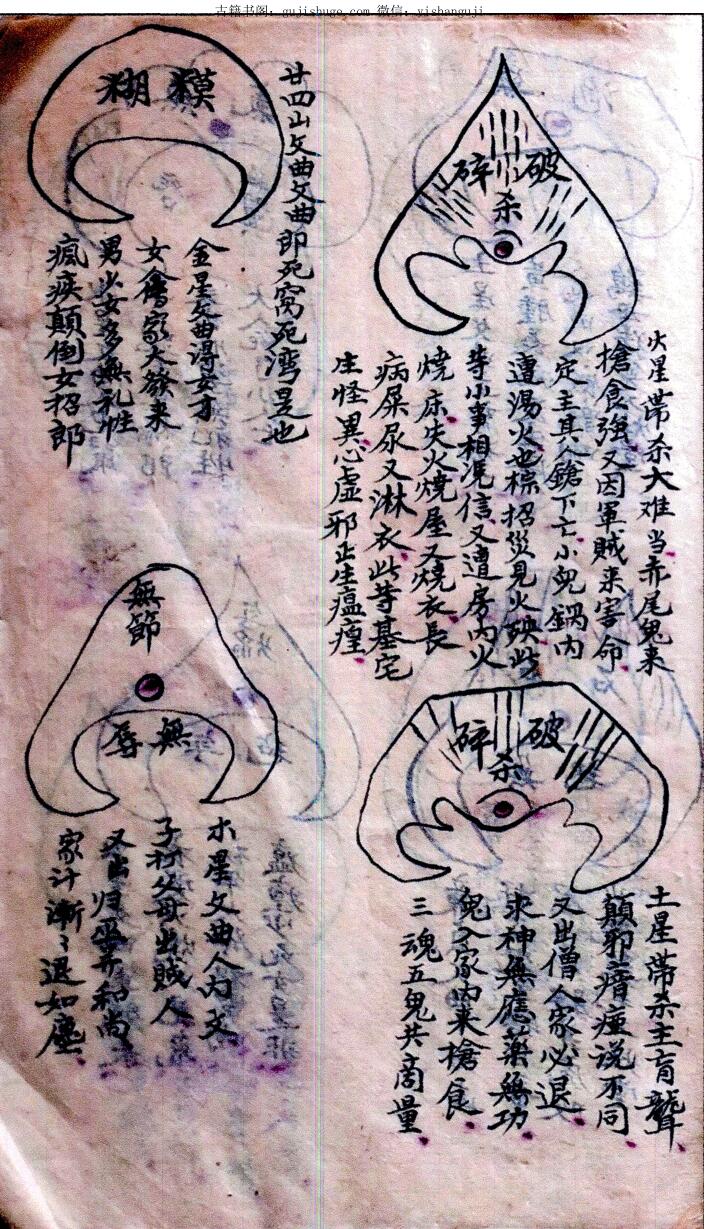 古籍书阁：gujishuge.com 微信：yishanguji
破碎
杀
火星带杀大难当赤尾鬼来
搶食強又因軍賊来害命
定主其人鎗下亡小兒鍋内
遭湯火也棕招災見火殃此
等小事相况信又遭房内火
燒床失火燒屋又燒衣長
病屎尿又淋衣此等基宅
生怪異心虚邪正生瘟癀
破碎
杀
土星带杀主盲聾
顛邪瘖瘂说不同
又出僧人家必退
求神無應藥無功
鬼入家内来搶食
三魂五鬼共商量
廿四山文曲文曲即死窝死湾是也
模糊
金星文曲淂女才
女會家大發来
男少女多無礼性
瘋疾顛倒女招郎
無節
無辱
水星文曲人内文
子打父母出賊人
又出归巫并和尚
家计漸〻退如塵